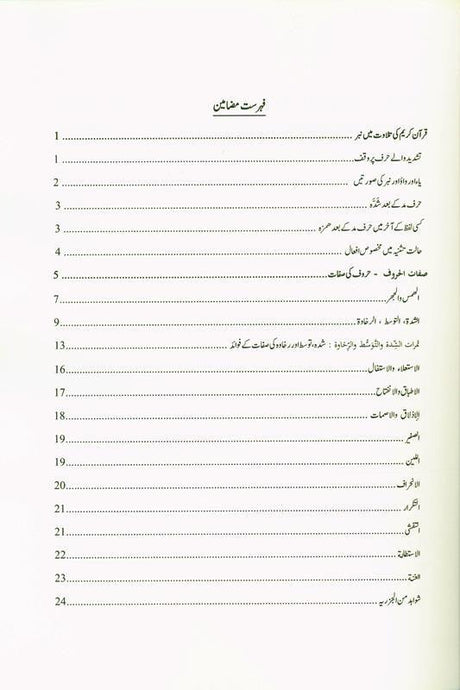 فہرست مضامین
قرآن کریم کی تلاوت میں نبر ........ 1
تشدید والے حرف پر وقف ........ 1
یاء اور واؤ اور نبر کی صورتیں ........ 2
حرف مد کے بعد شدّہ ........ 3
کسی لفظ کے آخر میں حرف مد کے بعد ھمزہ ........ 3
حالت تثنیہ میں مخصوص افعال ........ 4
صفات الحروف - حروف کی صفات ........ 5
الھمس والجھر ........ 7
الشدۃ، التوسط ، الرخاوۃ ........ 9
ثمرات الشِّدة والتَّوَسُّط والرِّخاوة : شدہ، توسط اور رخاوہ کی صفات کے فوائد ........ 13
الاستعلاء والاستفال ........ 16
الاطباق والانفتاح ........ 17
الإذلاق والاصمات ........ 18
الصفیر ........ 19
اللین ........ 19
الانحراف ........ 20
التکرار ........ 21
التفشی ........ 21
الاستطالۃ ........ 22
الغنۃ ........ 23
شواہد من الجزریہ ........ 24